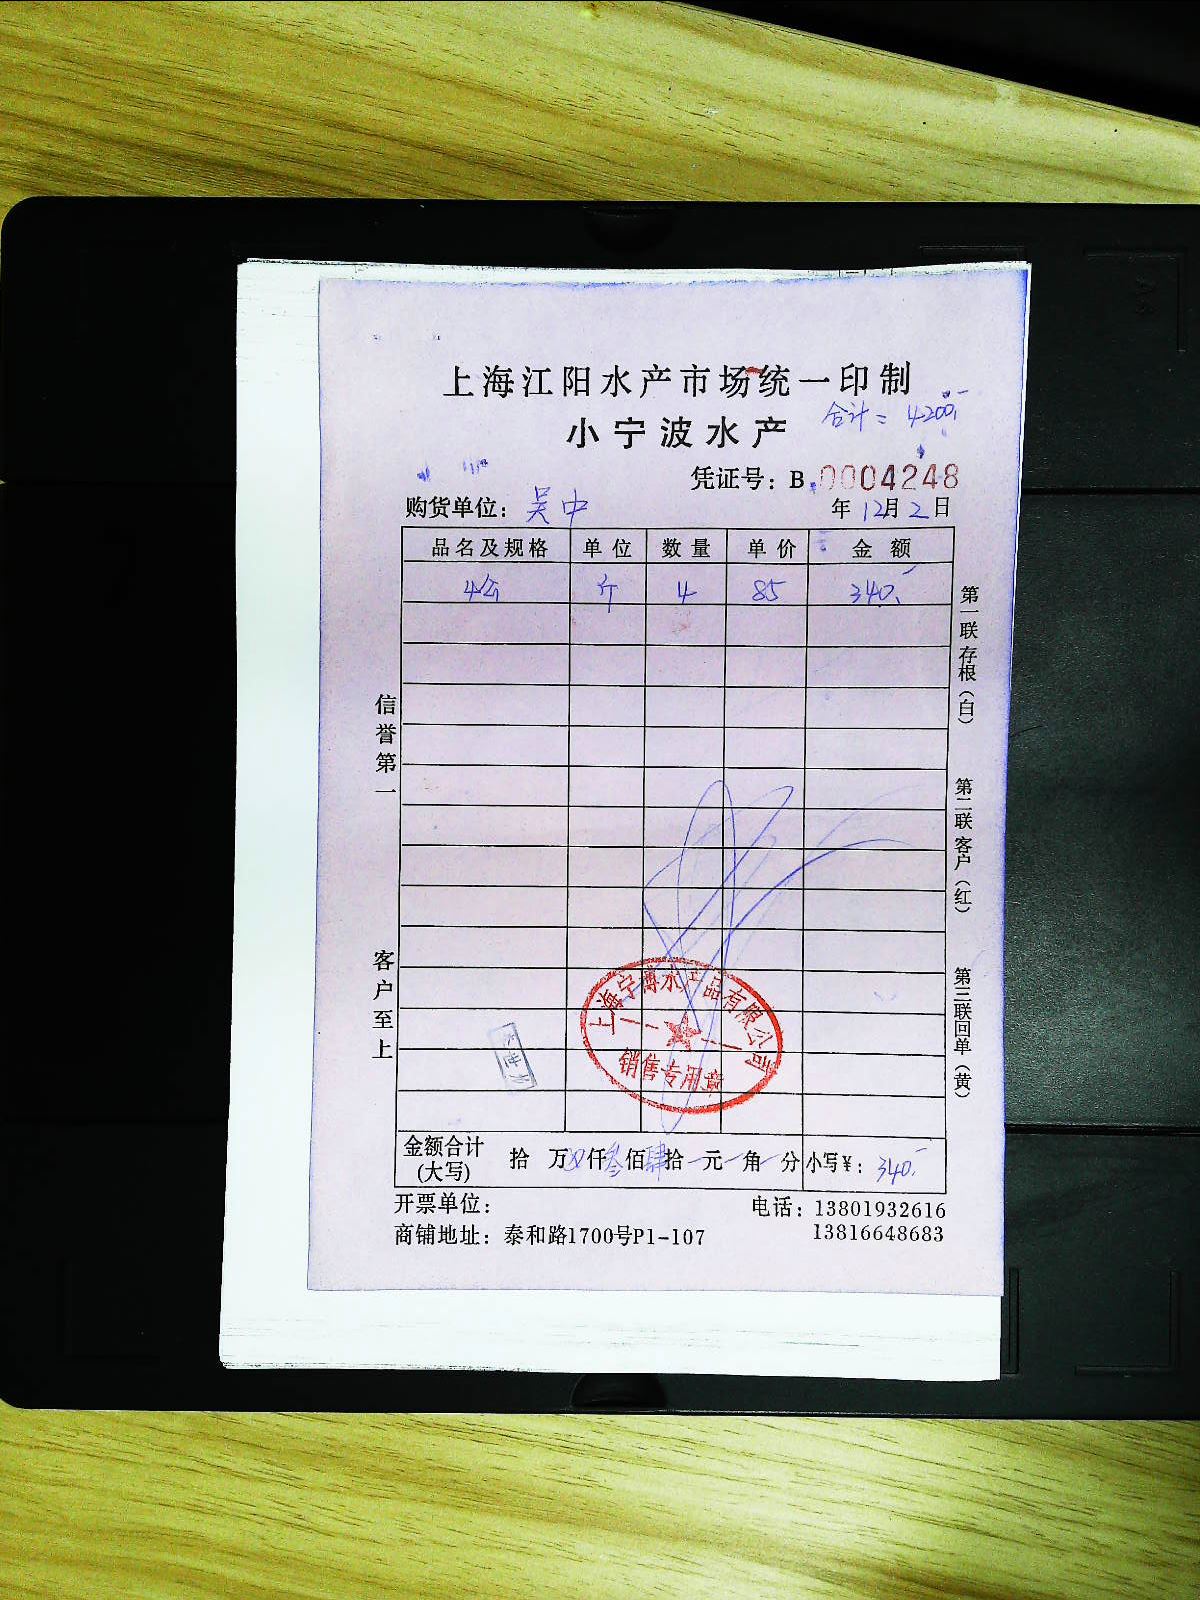 上海江阳水产市场统一印制
小宁波水产
合计：4200.-
凭证号：B 0004248
购货单位：吴中
年12月2日
品名及规格 单位 数量 单价 金额
4公 斤 4 85 340.-
信誉第一
客户至上
第一联存根（白）
第二联客户（红）
第三联回单（黄）
上海宁博水产品有限公司
销售专用章
金额合计（大写） 拾 万 仟叁佰肆拾 元 角 分 小写¥：340.-
开票单位：
电话：13801932616
商铺地址：泰和路1700号P1-107
13816648683